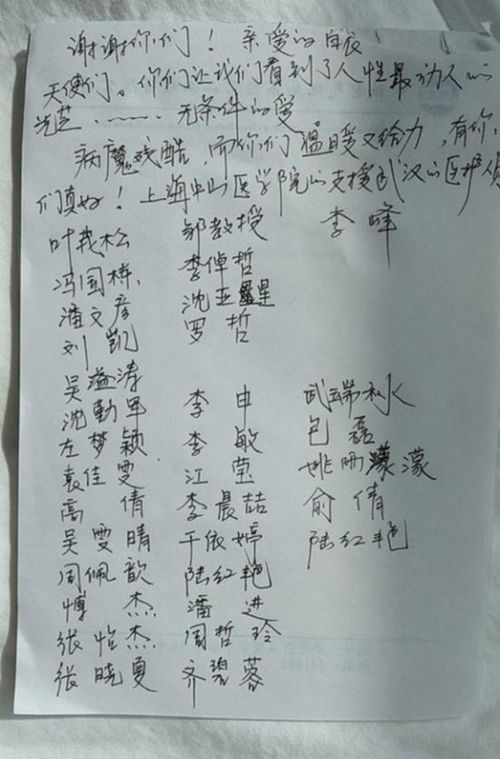 谢谢你们！亲爱的白衣
天使们。你们让我们看到了人性最动人的
光芒……无条件的爱
病魔残酷，而你们温暖又给力，有你
们真好！上海中山医学院的支援武汉的医护人员
叶茂松 郭教授 李峰
冯国栋 李倬哲
潘文彦 沈亚星
刘凯 罗哲
吴溢涛
沈勤军 李申 武端水
左梦颖 李敏 包磊
袁佳雯 江莹 姚雨濛
高倩 李晨喆 俞倩
吴雯晴 于依婷 陆红艳
周佩歆 陆红艳
傅杰 潘进
张怡杰 周哲玲
张晓夏 齐碧蓉